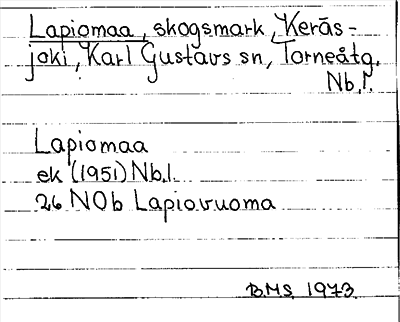 Lapiomaa, skogsmark, Keräs-
joki, Karl Gustavs sn, Torneåtg,
Nb.l.
Lapiomaa
ek (1951) Nb.l.
26 NOb Lapiovuoma
B.M.S. 1973.